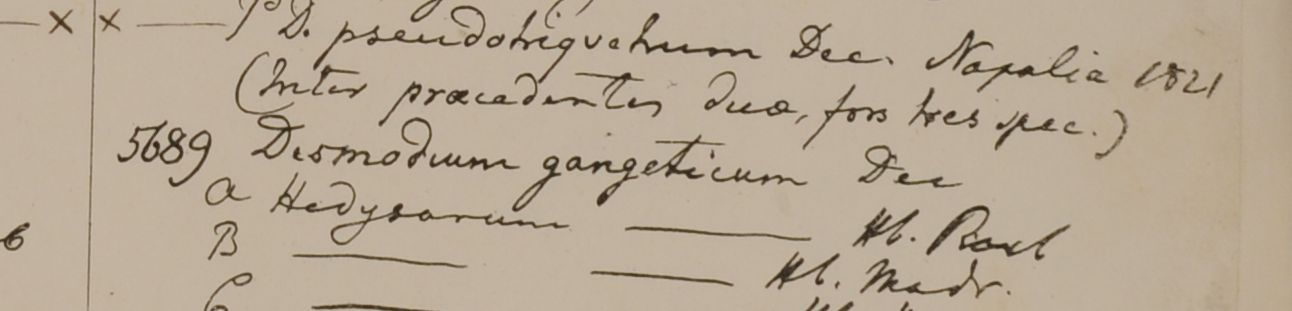 x x D. pseudotriquetrum Dec. Napalia 1821
(Inter præcedentes duæ, fors tres spec.)
5689 Desmodium gangeticum Dec
a Hedysarum Hb. Roxb
6 B Hb. Madr.
C